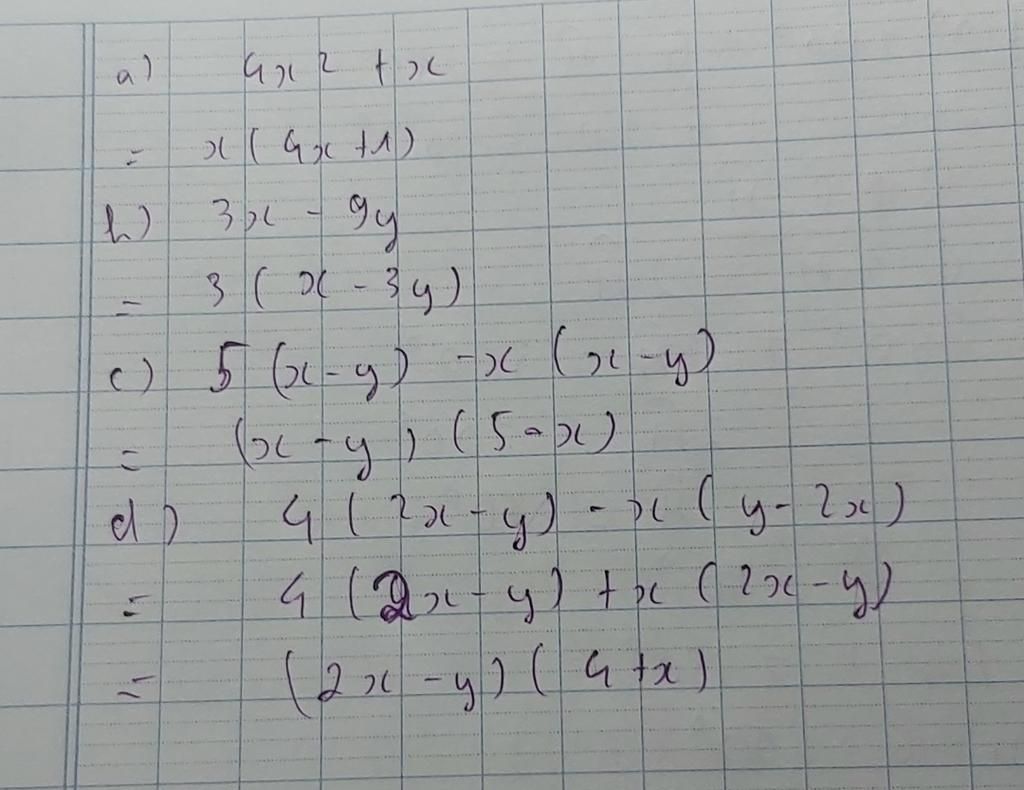 a) 4x² + x
= x(4x + 1)
b) 3x - 9y
= 3(x - 3y)
c) 5(x - y) - x(x - y)
= (x - y)(5 - x)
d) 4(2x - y) - x(y - 2x)
= 4(2x - y) + x(2x - y)
= (2x - y)(4 + x)